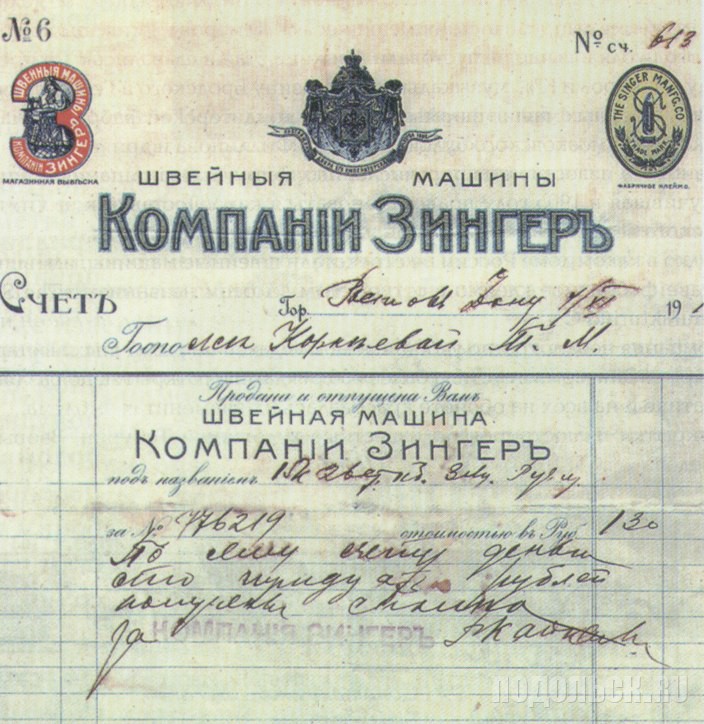 № 6
№ сч. 613
ШВЕЙНЫЯ МАШИНЫ КОМПАНІИ ЗИНГЕРЪ
МАГАЗИННАЯ ВЫВѢСКА
THE SINGER MANFG. CO
TRADE MARK
ФАБРИЧНОЕ КЛЕЙМО.
ШВЕЙНЫЯ МАШИНЫ
КОМПАНІИ ЗИНГЕРЪ
СЧЕТЪ Гор. Дону 191
Госпо
Продана и отпущена Вамъ
ШВЕЙНАЯ МАШИНА
КОМПАНІИ ЗИНГЕРЪ
подъ названіемъ
за № 776219 стоимостью въ Руб. 130
По сему счету деньги
сто тридцать рублей
получены сполна
За КОМПАНІЯ ЗИНГЕРЪ
ПОДОЛЬСК.RU